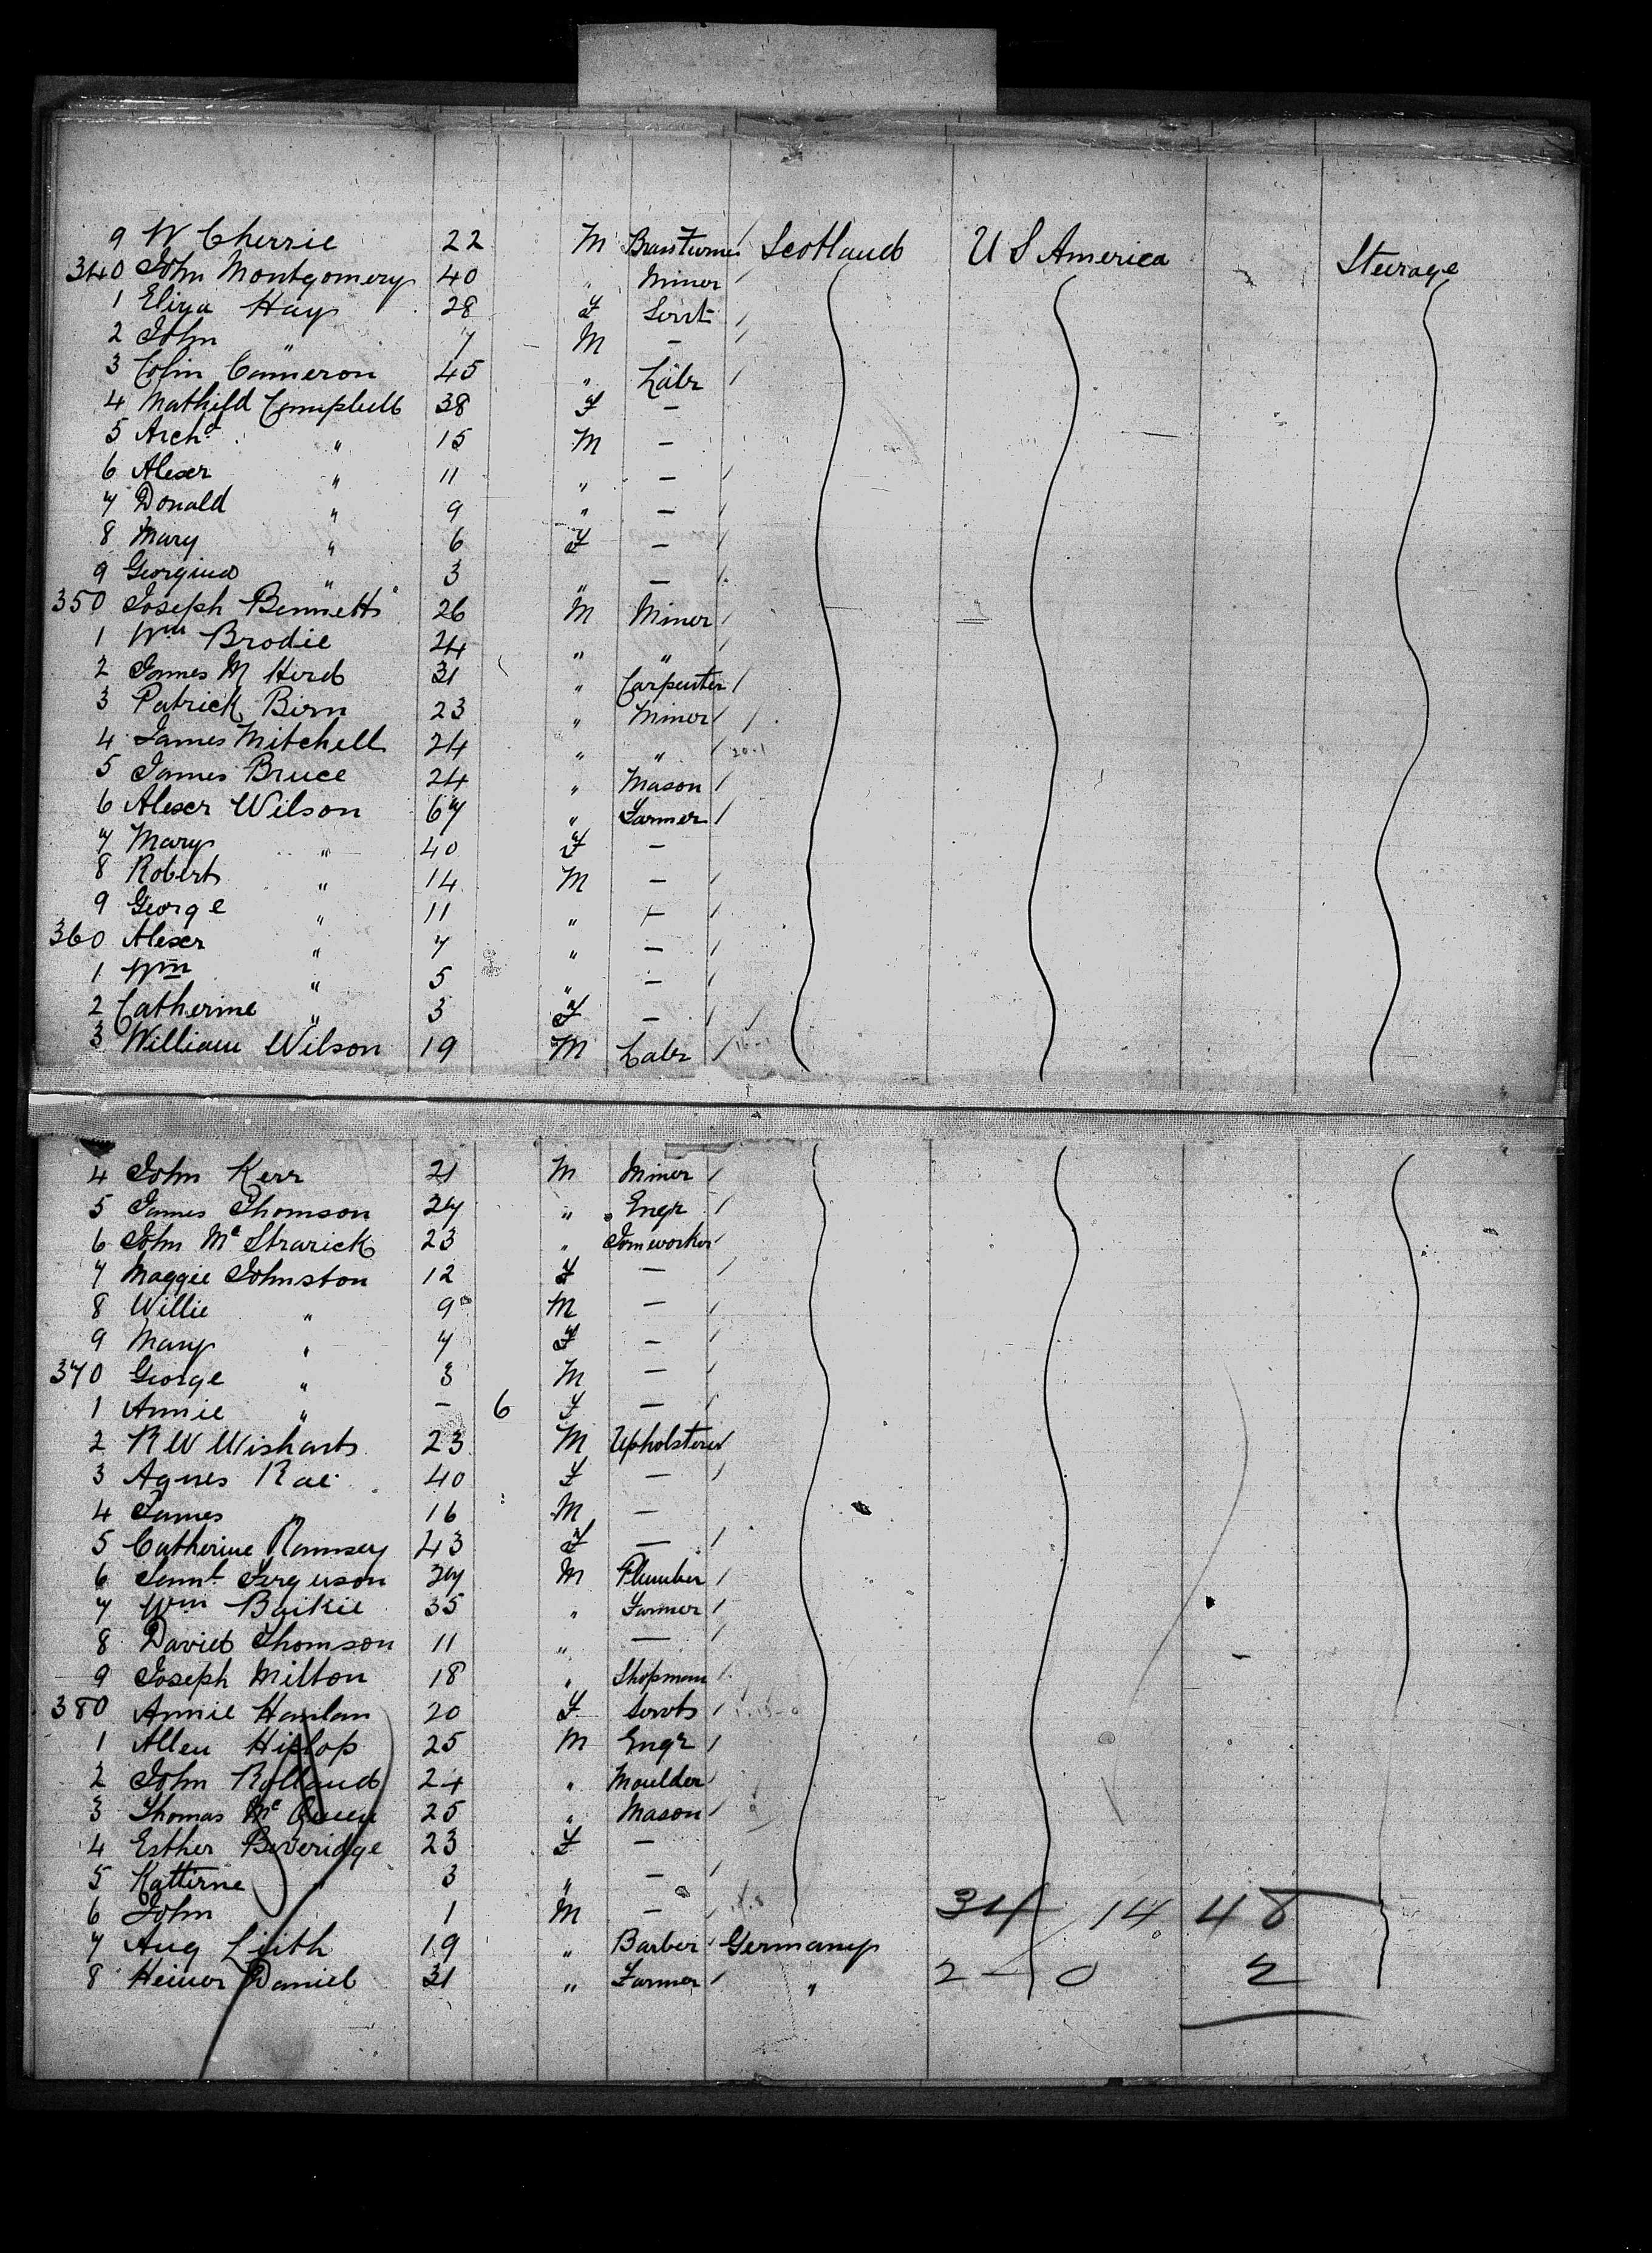 9 W Cherrie 22 M Brass Turner Scotland U S America Steerage
340 John Montgomery 40 " Miner
1 Eliza Hay 28 F Servt
2 John " 7 M —
3 Colin Cameron 45 " Labr
4 Mathild Campbell 38 F —
5 Archd " 15 M —
6 Alexr " 11 " —
7 Donald " 9 " —
8 Mary " 6 F —
9 Georgina " 3 " —
350 Joseph Bennett 26 M Miner
1 Wm Brodie 24 " "
2 James M Herd 31 " Carpenter
3 Patrick Birn 23 " Miner
4 James Mitchell 24 " "
5 James Bruce 24 " Mason
6 Alexr Wilson 67 " Farmer
7 Mary " 40 F —
8 Robert " 14 M —
9 George " 11 " —
360 Alexr " 7 " —
1 Wm " 5 " —
2 Catherine " 3 F —
3 William Wilson 19 M Labr
4 John Kerr 21 M Miner
5 James Thomson 27 " Engr
6 John Mc 23 " Ironworker
7 Maggie Johnston 12 F —
8 Willie " 9 M —
9 Mary " 7 F —
370 George " 3 M —
1 Annie " — 6 F —
2 R W Wishart 23 M Upholsterer
3 Agnes Rae 40 F —
4 James " 16 M —
5 Catherine Ramsey 43 F —
6 Saml Ferguson 37 M Plumber
7 Wm Baikie 35 " Farmer
8 David Thomson 11 " —
9 Joseph Milton 18 " Shopman
380 Annie Hanlan 20 F Servt
1 Allen Hislop 25 M Engr
2 John Rolland 24 " Moulder
3 Thomas Mc Queen 25 " Mason
4 Esther Beveridge 23 F —
5 Katterne " 3 " —
6 John 1 M — 34 14 48
7 Aug Leith 19 " Barber Germany
8 Heiner Daniel 31 " Farmer " 2 — 0 2